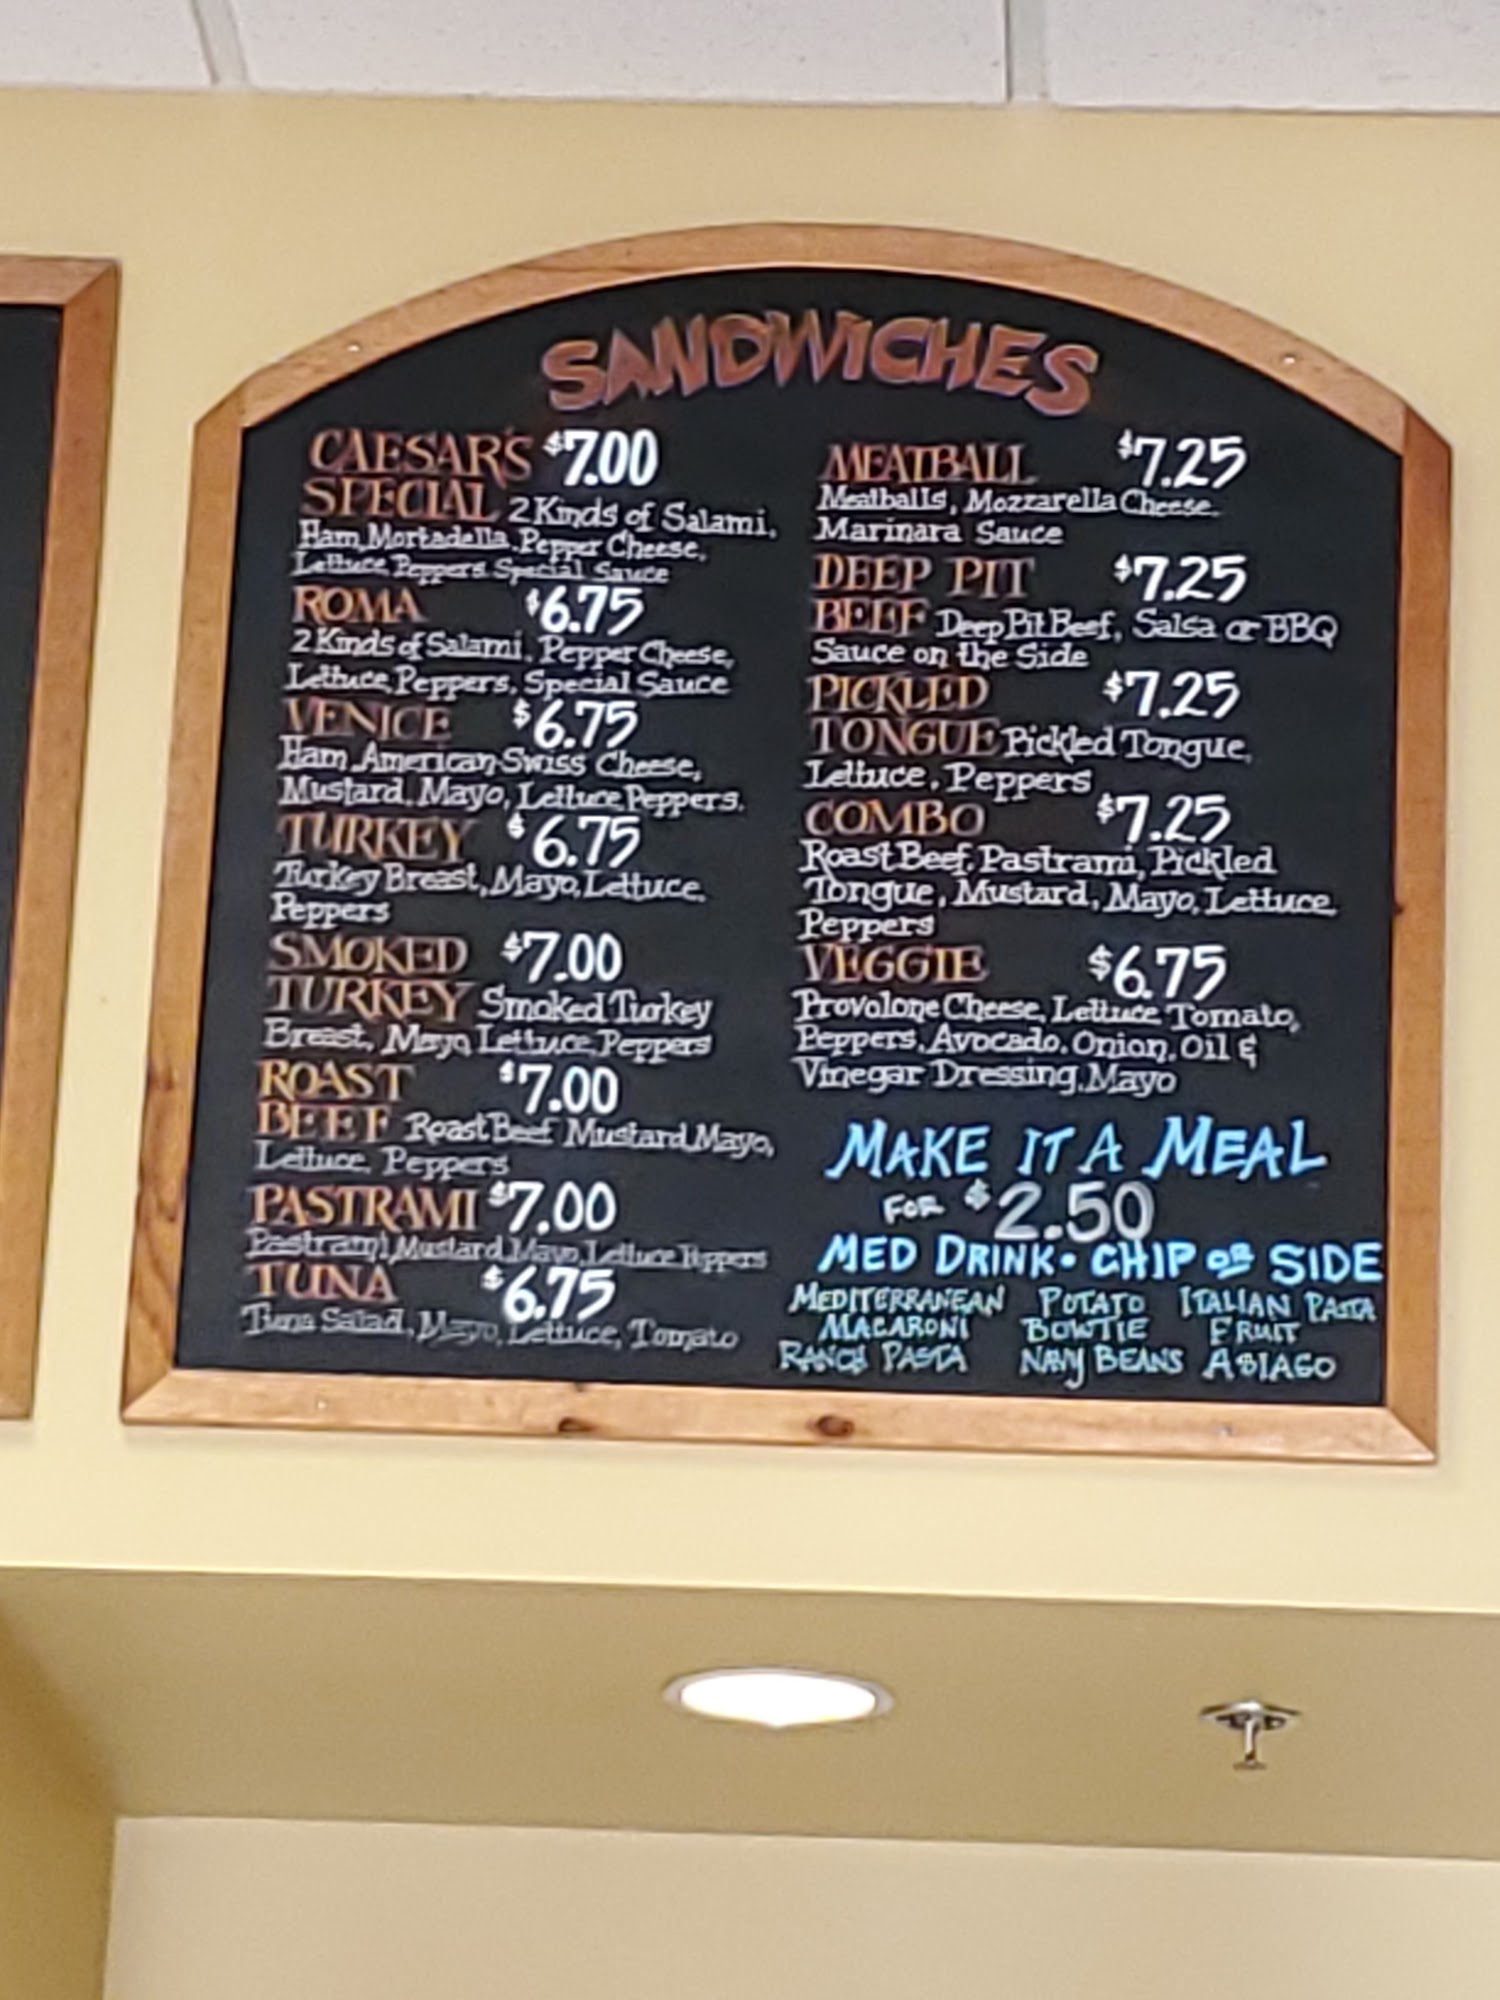 SANDWICHES
CAESAR'S $7.00
SPECIAL 2 Kinds of Salami,
Ham, Mortadella, Pepper Cheese,
Lettuce, Peppers, Special Sauce
ROMA $6.75
2 Kinds of Salami, Pepper Cheese,
Lettuce, Peppers, Special Sauce
VENICE $6.75
Ham, American-Swiss Cheese,
Mustard, Mayo, Lettuce, Peppers.
TURKEY $6.75
Turkey Breast, Mayo, Lettuce,
Peppers
SMOKED $7.00
TURKEY Smoked Turkey
Breast, Mayo, Lettuce, Peppers
ROAST $7.00
BEEF Roast Beef Mustard, Mayo,
Lettuce, Peppers
PASTRAMI $7.00
Pastrami, Mustard, Mayo, Lettuce Peppers
TUNA $6.75
Tuna Salad, Mayo, Lettuce, Tomato
MEATBALL $7.25
Meatballs, Mozzarella Cheese,
Marinara Sauce
DEEP PIT $7.25
BEEF Deep Pit Beef, Salsa or BBQ
Sauce on the Side
PICKLED $7.25
TONGUE Pickled Tongue,
Lettuce, Peppers
COMBO $7.25
Roast Beef, Pastrami, Pickled
Tongue, Mustard, Mayo, Lettuce
Peppers
VEGGIE $6.75
Provolone Cheese, Lettuce Tomato,
Peppers, Avocado, Onion, Oil &
Vinegar Dressing, Mayo
MAKE IT A MEAL
FOR $2.50
MED DRINK • CHIP OR SIDE
MEDITERRANEAN POTATO ITALIAN PASTA
MACARONI BOWTIE FRUIT
RANCH PASTA NAVY BEANS ASIAGO